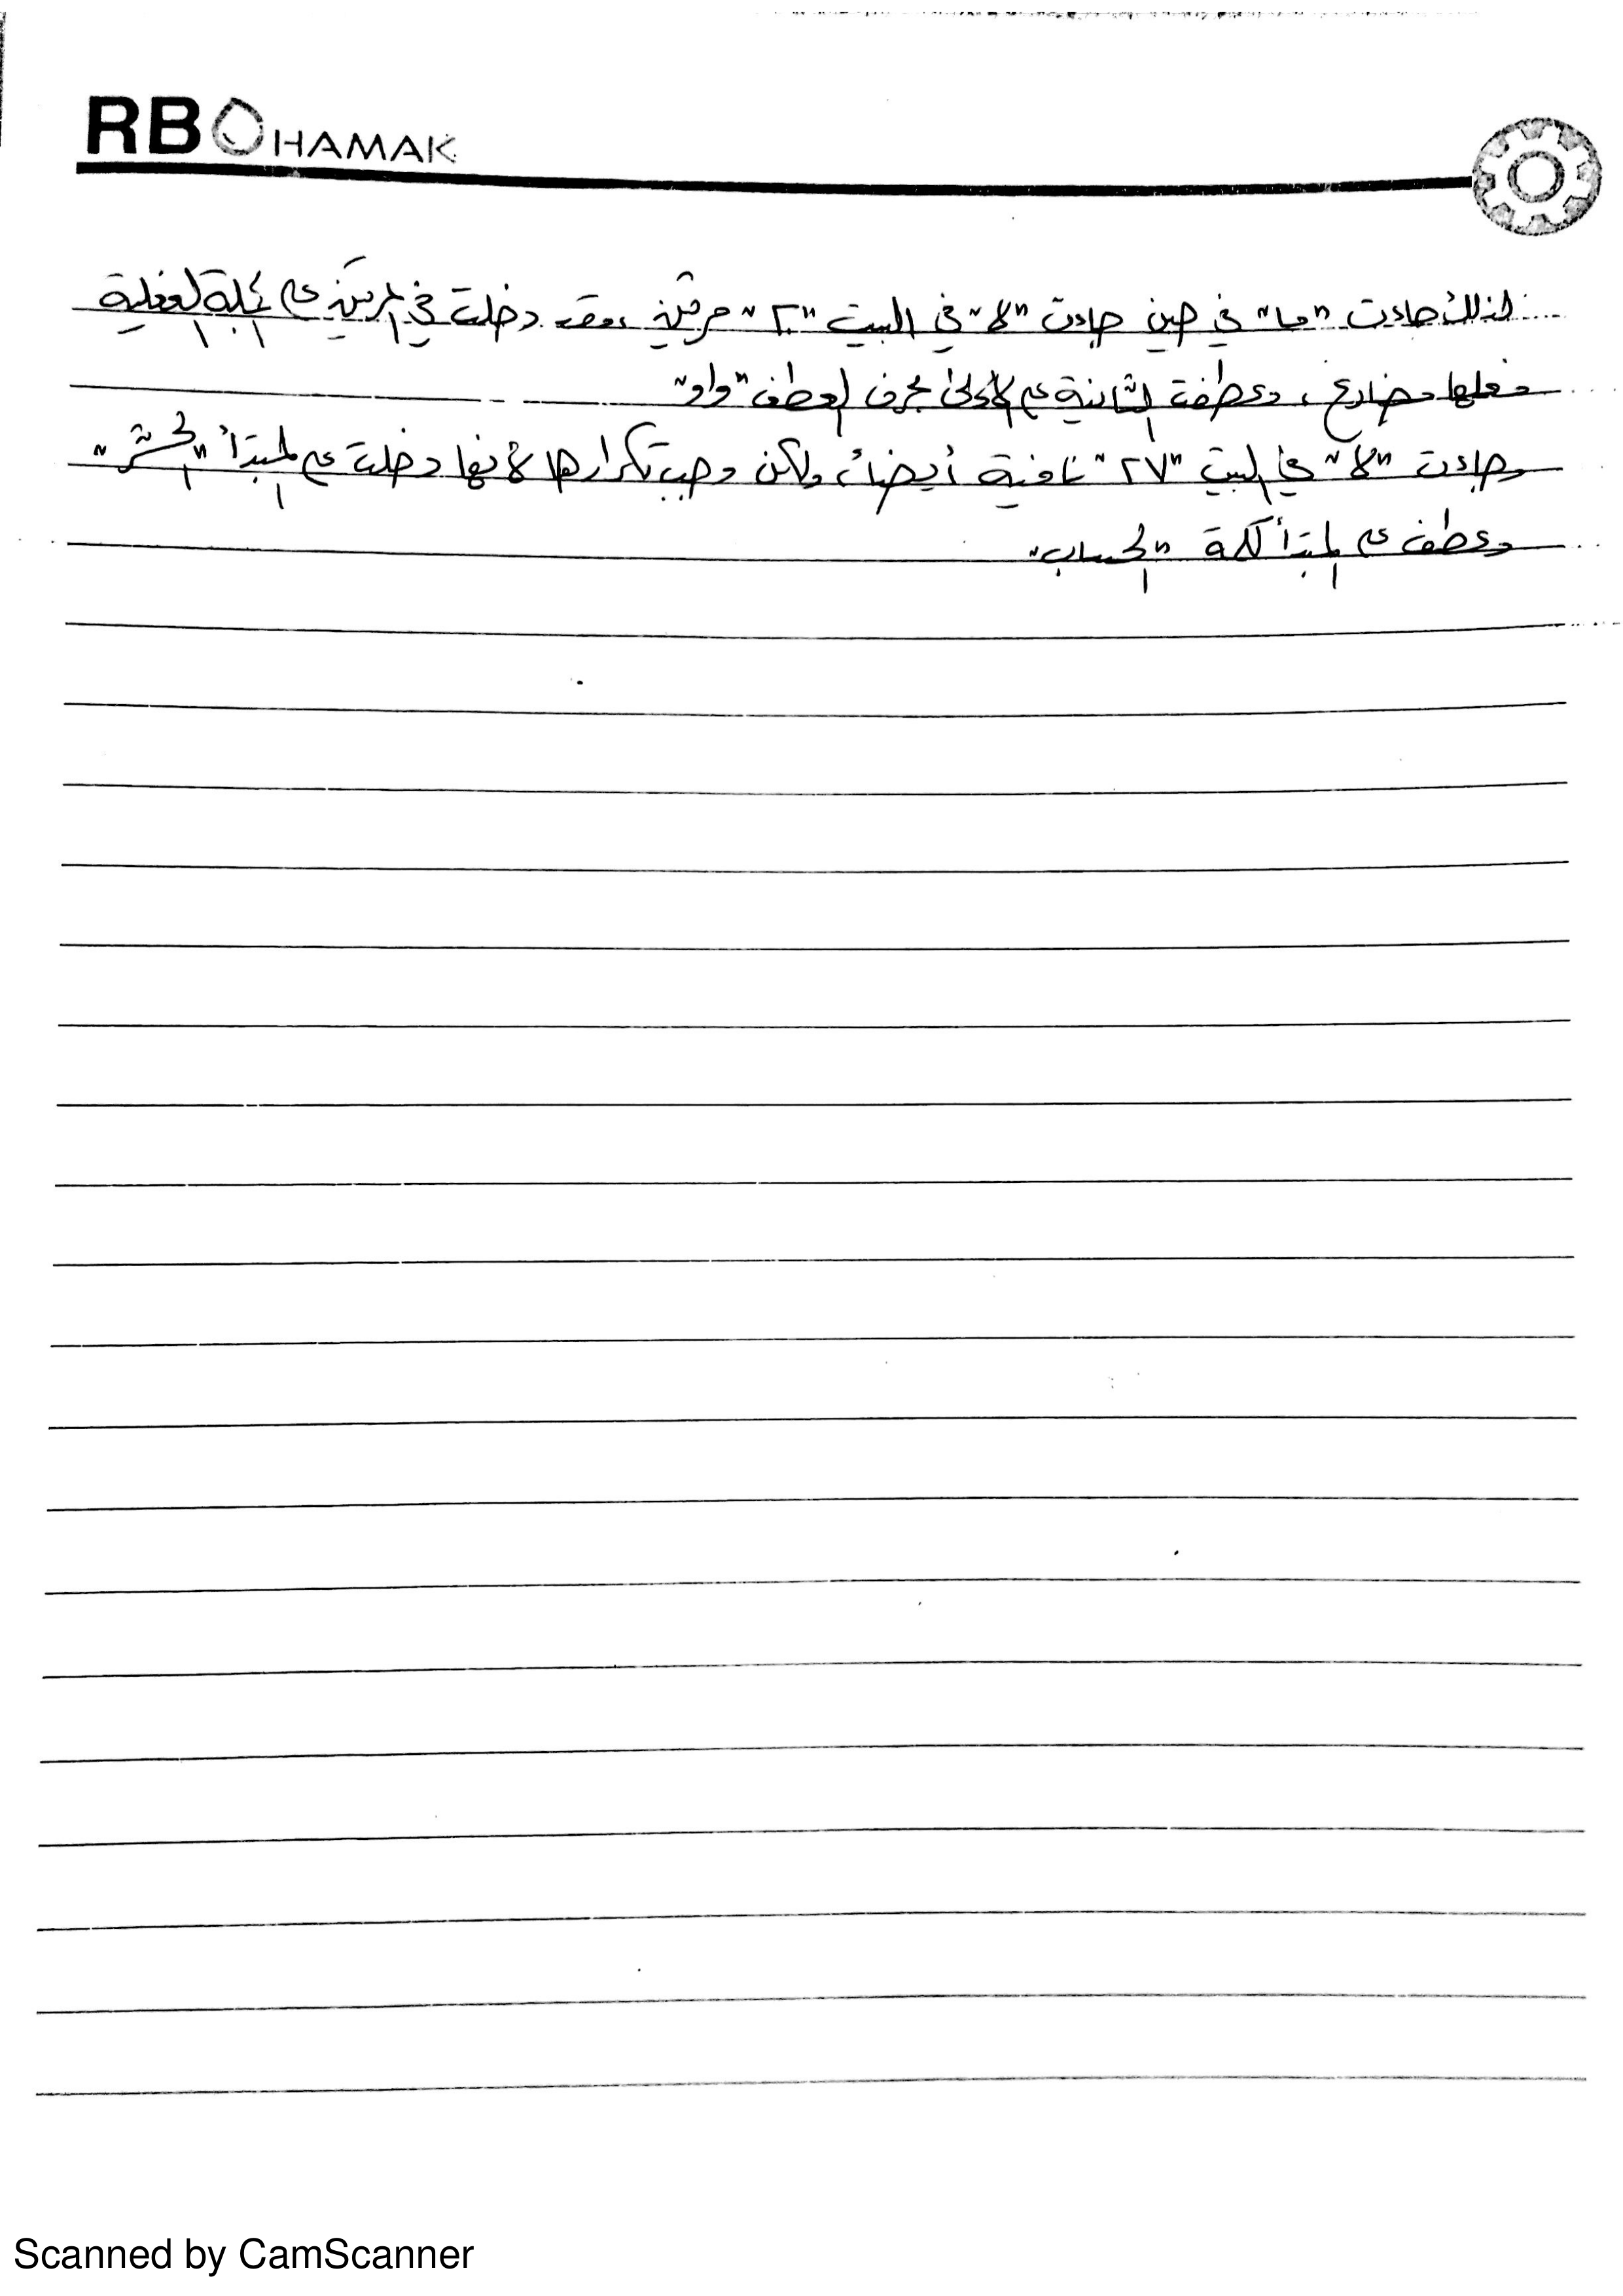 RB HAMAK
لذلك جاءت "ما" في حين جاءت "لا" في البيت "٢" مرتين، وقد دخلت في المرتين على الجملة الفعلية
فعلها مضارع، وعطفت الثانية على الأولى بحرف العطف "واو"
وجاءت "لا" في البيت "٢٧" نافية أيضاً، ولكن وجب تكرارها لأنها دخلت على المبتدأ "الحشر"
وعطف على المبتدأ كلمة "الحساب"
Scanned by CamScanner